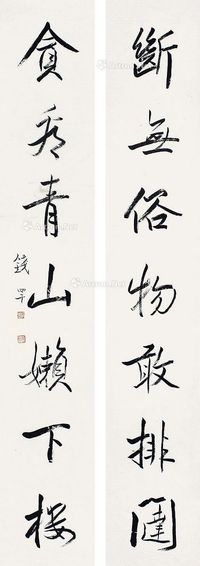 斷無俗物敢排闥
貪看青山嬾下楼
錢罕